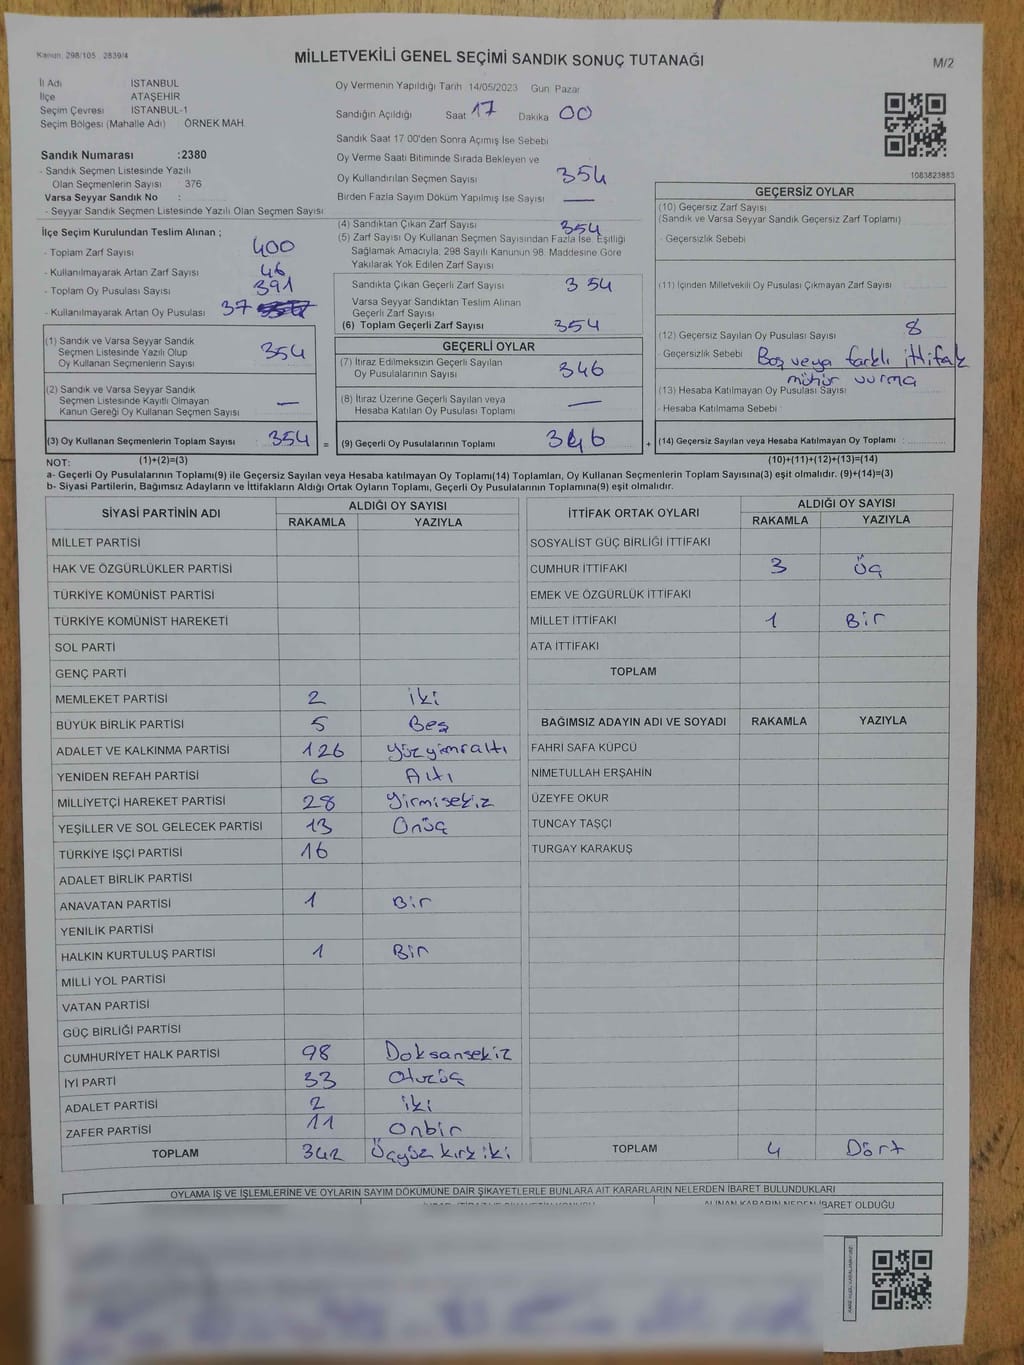 Kanun 298/105 2839/4
MİLLETVEKİLİ GENEL SEÇİMİ SANDIK SONUÇ TUTANAĞI
M/2
İl Adı İSTANBUL
İlçe ATAŞEHİR
Seçim Çevresi İSTANBUL-1
Seçim Bölgesi (Mahalle Adı) ÖRNEK MAH.
Sandık Numarası :2380
- Sandık Seçmen Listesinde Yazılı
Olan Seçmenlerin Sayısı 376
Varsa Seyyar Sandık No :
- Seyyar Sandık Seçmen Listesinde Yazılı Olan Seçmen Sayısı
İlçe Seçim Kurulundan Teslim Alınan ;
- Toplam Zarf Sayısı 400
- Kullanılmayarak Artan Zarf Sayısı 46
- Toplam Oy Pusulası Sayısı 391
- Kullanılmayarak Artan Oy Pusulası 37
(1) Sandık ve Varsa Seyyar Sandık
Seçmen Listesinde Yazılı Olup
Oy Kullanan Seçmenlerin Sayısı 354
(2) Sandık ve Varsa Seyyar Sandık
Seçmen Listesinde Kayıtlı Olmayan
Kanun Gereği Oy Kullanan Seçmen Sayısı —
(3) Oy Kullanan Seçmenlerin Toplam Sayısı : 354 =
(1)+(2)=(3)
Oy Vermenin Yapıldığı Tarih 14/05/2023 Gün Pazar
Sandığın Açıldığı Saat 17 Dakika 00
Sandık Saat 17 00'den Sonra Açımış İse Sebebi
Oy Verme Saati Bitiminde Sırada Bekleyen ve
Oy Kullandırılan Seçmen Sayısı 354
Birden Fazla Sayım Döküm Yapılmış İse Sayısı —
(4) Sandıktan Çıkan Zarf Sayısı 354
(5) Zarf Sayısı Oy Kullanan Seçmen Sayısından Fazla İse, Eşitliği
Sağlamak Amacıyla, 298 Sayılı Kanunun 98. Maddesine Göre
Yakılarak Yok Edilen Zarf Sayısı
Sandıkta Çıkan Geçerli Zarf Sayısı 354
Varsa Seyyar Sandıktan Teslim Alınan
Geçerli Zarf Sayısı
(6) Toplam Geçerli Zarf Sayısı 354
GEÇERLİ OYLAR
(7) İtiraz Edilmeksizin Geçerli Sayılan
Oy Pusulalarının Sayısı 346
(8) İtiraz Üzerine Geçerli Sayılan veya
Hesaba Katılan Oy Pusulası Toplamı —
(9) Geçerli Oy Pusulalarının Toplamı 346 +
1083823883
GEÇERSİZ OYLAR
(10) Geçersiz Zarf Sayısı
(Sandık ve Varsa Seyyar Sandık Geçersiz Zarf Toplamı)
- Geçersizlik Sebebi
(11) İçinden Milletvekili Oy Pusulası Çıkmayan Zarf Sayısı
(12) Geçersiz Sayılan Oy Pusulası Sayısı 8
- Geçersizlik Sebebi Boş veya farklı ittifak
mühür vurma
(13) Hesaba Katılmayan Oy Pusulası Sayısı
- Hesaba Katılmama Sebebi
(14) Geçersiz Sayılan veya Hesaba Katılmayan Oy Toplamı :
(10)+(11)+(12)+(13)=(14)
NOT:
a- Geçerli Oy Pusulalarının Toplamı(9) ile Geçersiz Sayılan veya Hesaba katılmayan Oy Toplamı(14) Toplamları, Oy Kullanan Seçmenlerin Toplam Sayısına(3) eşit olmalıdır. (9)+(14)=(3)
b- Siyasi Partilerin, Bağımsız Adayların ve İttifakların Aldığı Ortak Oyların Toplamı, Geçerli Oy Pusulalarının Toplamına(9) eşit olmalıdır.
SİYASİ PARTİNİN ADI ALDIĞI OY SAYISI
RAKAMLA YAZIYLA
MİLLET PARTİSİ
HAK VE ÖZGÜRLÜKLER PARTİSİ
TÜRKİYE KOMÜNİST PARTİSİ
TÜRKİYE KOMÜNİST HAREKETİ
SOL PARTİ
GENÇ PARTİ
MEMLEKET PARTİSİ 2 iki
BÜYÜK BİRLİK PARTİSİ 5 Beş
ADALET VE KALKINMA PARTİSİ 126 yüzyirmialtı
YENİDEN REFAH PARTİSİ 6 Altı
MİLLİYETÇİ HAREKET PARTİSİ 28 Yirmisekiz
YEŞİLLER VE SOL GELECEK PARTİSİ 13 Onüç
TÜRKİYE İŞÇİ PARTİSİ 16
ADALET BİRLİK PARTİSİ
ANAVATAN PARTİSİ 1 Bir
YENİLİK PARTİSİ
HALKIN KURTULUŞ PARTİSİ 1 Bir
MİLLİ YOL PARTİSİ
VATAN PARTİSİ
GÜÇ BİRLİĞİ PARTİSİ
CUMHURİYET HALK PARTİSİ 98 Doksansekiz
İYİ PARTİ 33 Otuzüç
ADALET PARTİSİ 2 iki
ZAFER PARTİSİ 11 Onbir
TOPLAM 342 Üçyüz kırk iki
İTTİFAK ORTAK OYLARI ALDIĞI OY SAYISI
RAKAMLA YAZIYLA
SOSYALİST GÜÇ BİRLİĞİ İTTİFAKI
CUMHUR İTTİFAKI 3 Üç
EMEK VE ÖZGÜRLÜK İTTİFAKI
MİLLET İTTİFAKI 1 Bir
ATA İTTİFAKI
TOPLAM
BAĞIMSIZ ADAYIN ADI VE SOYADI RAKAMLA YAZIYLA
FAHRİ SAFA KÜPCÜ
NİMETULLAH ERŞAHİN
ÜZEYFE OKUR
TUNCAY TAŞÇI
TURGAY KARAKUŞ
TOPLAM 4 Dört
OYLAMA İŞ VE İŞLEMLERİNE VE OYLARIN SAYIM DÖKÜMÜNE DAİR ŞİKAYETLERLE BUNLARA AİT KARARLARIN NELERDEN İBARET BULUNDUKLARI
ALINAN KARARIN NEDEN İBARET OLDUĞU